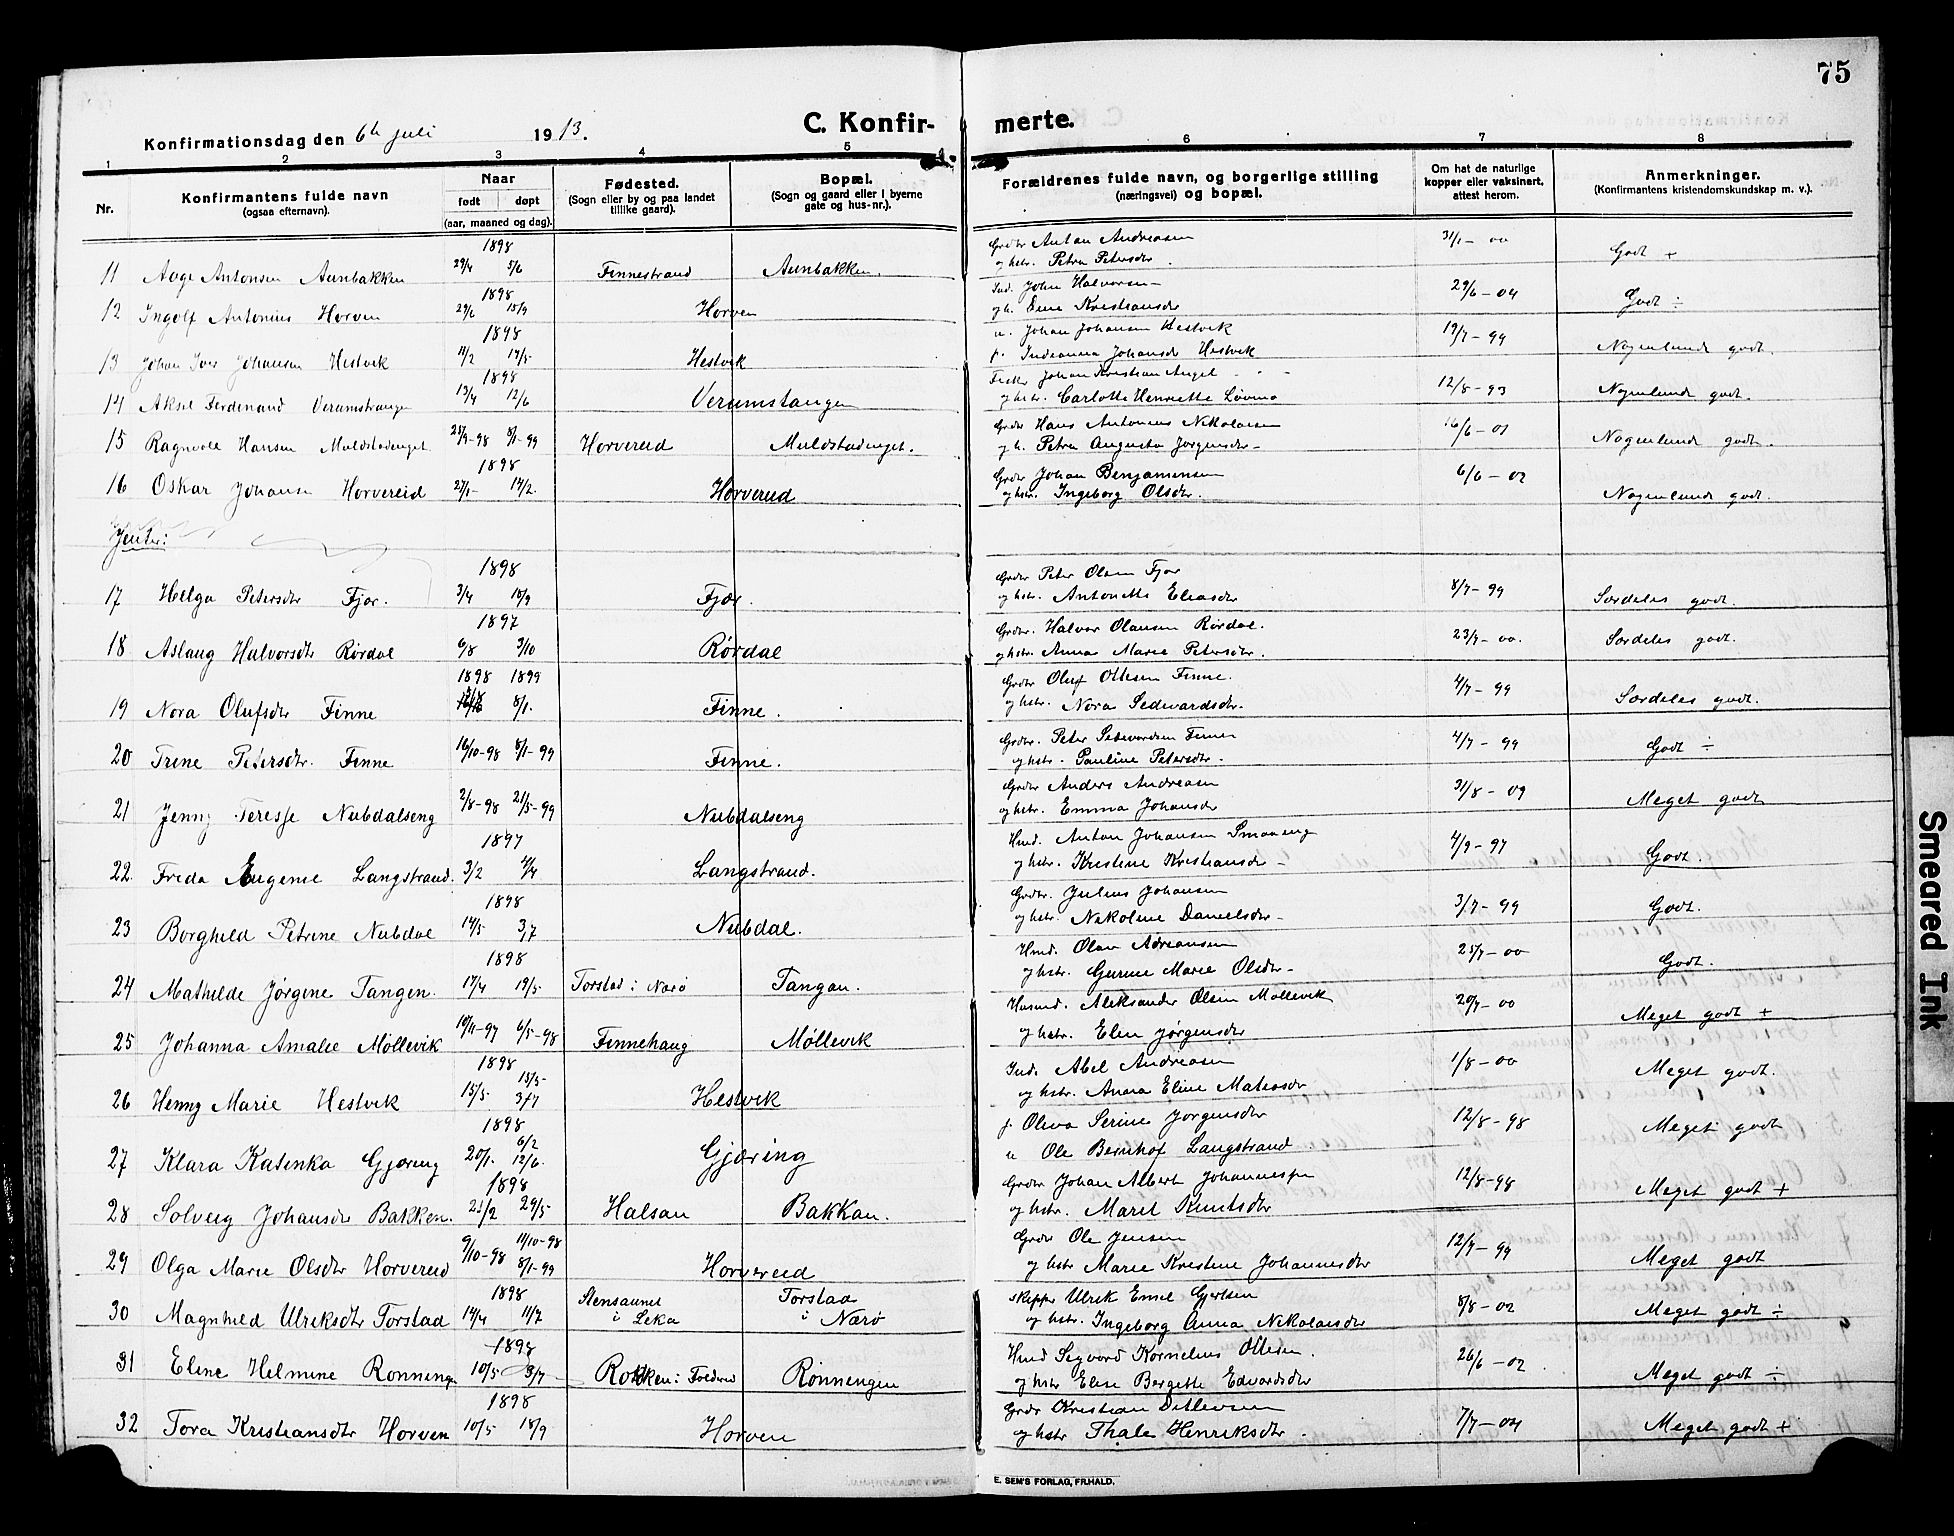 75
Konfirmationsdag den 6te juli 1913.
C. Konfir-merte.
1 2 3 4 5 6 7 8
Nr.
Konfirmantens fulde navn
(ogsaa efternavn).
Naar
født døpt
(aar, maaned og dag).
Fødested.
(Sogn eller by og paa landet
tillike gaard).
Bopæl.
(Sogn og gaard eller i byerne
gate og hus-nr.).
Forældrenes fulde navn, og borgerlige stilling
(næringsvei) og bopæl.
Om hat de naturlige
kopper eller vaksinert,
attest herom.
Anmerkninger.
(Konfirmantens kristendomskundskap m. v.).
1898
11 Aage Antonsen Aunbakken 29/4 5/6 Finnestrand Aunbakken.
Grdbr Anton Andreasen
og hstr. Petra Petersdtr.
31/1 - 00 Godt +
1898
12 Ingolf Antonius Horven 29/6 15/9 Horven
Ind. John Halvorsen
og h. Eline Kristiansdtr
29/6 - 04 Godt ÷
1898
13 Johan Iver Johansen Hestvik 11/2 19/5 Hestvik
u. Johan Johansen Hestvik
p. Indianna Johansdtr Hestvik
19/7 - 99 Nogenlunde godt.
1898
14 Aksel Ferdinand Verumstrangen 13/4 12/6 Verumstangen
Fisker Johan Kristian Angel
og hstr. Carlotte Henriette Løvmo
12/8 - 93 Nogenlunde godt.
15 Ragnvald Hansen Muldstadenget 25/9-98 8/1-99 Horvereid Muldstadenget.
Grdbr Hans Antonius Nikolaisen
og h. Petra Augusta Jørgensdtr
16/6 - 01 Nogenlunde godt.
1898
16 Oskar Johansen Horvereid 27/1 14/2. Horvereid
Grdbr Johan Benjaminsen
og hstr. Ingeborg Olsdtr.
6/6 - 02 Nogenlunde godt.
Jenter:
1898
17 Helga Petersdtr Fjær. 3/4 18/9 Fjær.
Grdbr Peter Olsen Fjær
og hstr. Antonette Eliasdtr
8/7 - 99 Særdeles godt.
1897
18 Aslaug Halvorsdtr Rørdal 6/8 3/10 Rørdal
Grdbr. Halvor Olausen Rørdal.
og hstr. Anna Marie Petersdtr.
23/7 - 00. Særdeles godt.
1898 1899
19 Nora Olufsdtr Finne 8/1. Finne.
Grdbr Oluf Ottesen Finne.
og hstr. Nora Sedevardsdtr.
4/7 - 99 Særdeles godt.
20 Trine Petersdtr. Finne 16/10-98 8/1-99 Finne.
Grdbr. Peter Sedevardsen Finne
og hstr. Pauline Petersdtr.
4/7 - 99 Godt ÷
21 Jenny Teresje Nubdalseng 2/8-98 21/5-99 Nubdalseng
Grdbr Anders Andreasen
og hstr. Emma Johansdtr
31/8 - 09 Meget godt
1897
22. Freda Eugenie Langstrand. 3/2 4/4 Langstrand.
Hmd. Anton Johansen Smaaeng
og hstr. Kristine Kristiansdtr
4/9 - 97 Godt.
1898
23 Borghild Petrine Nubdal 14/5 3/7 Nubdal.
Grdbr. Julius Johansen
og hstr. Nikoline Danielsdtr
3/7 - 99 Godt.
1898
24 Mathilde Jørgine Tangen. 17/4 19/5 Torstad i Nærø Tangan.
Hmd. Olau Adriansen
og hstr. Gurine Marie Olsdtr
25/7 - 00 Godt.
25 Johanna Amalie Møllevik 10/11-97 6/5-98 Finnehaug Møllevik
Husmd. Aleksander Olsen Møllevik
og hstr. Elen Jørgensdtr
20/7 - 00 Meget godt +
1898
26 Henny Marie Hestvik 15/5 15/5 3/7 Hestvik
Ind. Abel Andreasen
og hstr. Anna Eline Mateusdtr
1/8 - 00 Meget godt.
1898
27 Klara Katinka Gjæring 20/1. 6/2 12/6. Gjæring
p. Oliva Serine Jørgensdtr
u. Ole Bernhof Langstrand
12/8 - 98 Meget godt
1898
28 Solveig Johansdtr Bakken. 21/2 29/5 Halsan Bakkan.
Grdbr Johan Albert Johannessen
og hstr. Marit Knutsdtr
12/8 - 98 Meget godt +
29 Olga Marie Olsdtr Horvereid 9/10-98 11/10-98 8/1-99 Horvereid
Grdbr Ole Jensen
og hstr Marie Kristine Johannesdtr
12/7 - 99 Meget godt
1898
30 Magnhild Ulriksdtr Torstad 14/4 11/7 Stensaunet i Leka Torstad i Nærø
Skipper Ulrik Emil Gjertsen
og hstr. Ingeborg Anna Nikolaisdtr
8/8 - 02 Meget godt ÷
1898
31 Eline Helmine Rønningen 10/5 3/7 Rokken i Foldereid Rønningen
Hmd Sigvard Kornelius Ottesen.
og hstr Elise Bergette Edvardsdtr
26/6 - 02. Meget godt ÷
1898
32 Tora Kristiansdtr Horven 10/5 18/9 Horven
Grdbr Kristian Ditlevsen
og hstr Thale Henriksdtr.
7/7 - 04 Meget godt +
E. SEM'S FORLAG, FR.HALD.
Smeared Ink